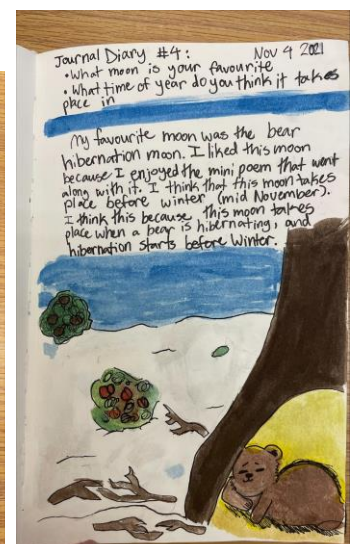 Journal Diary #4: Nov 4 2021
• What moon is your favourite
• What time of year do you think it takes
place in
My favourite moon was the bear
hibernation moon. I liked this moon
because I enjoyed the mini poem that went
along with it. I think that this moon takes
place before winter (mid November).
I think this because this moon takes
place when a bear is hibernating, and
hibernation starts before Winter.